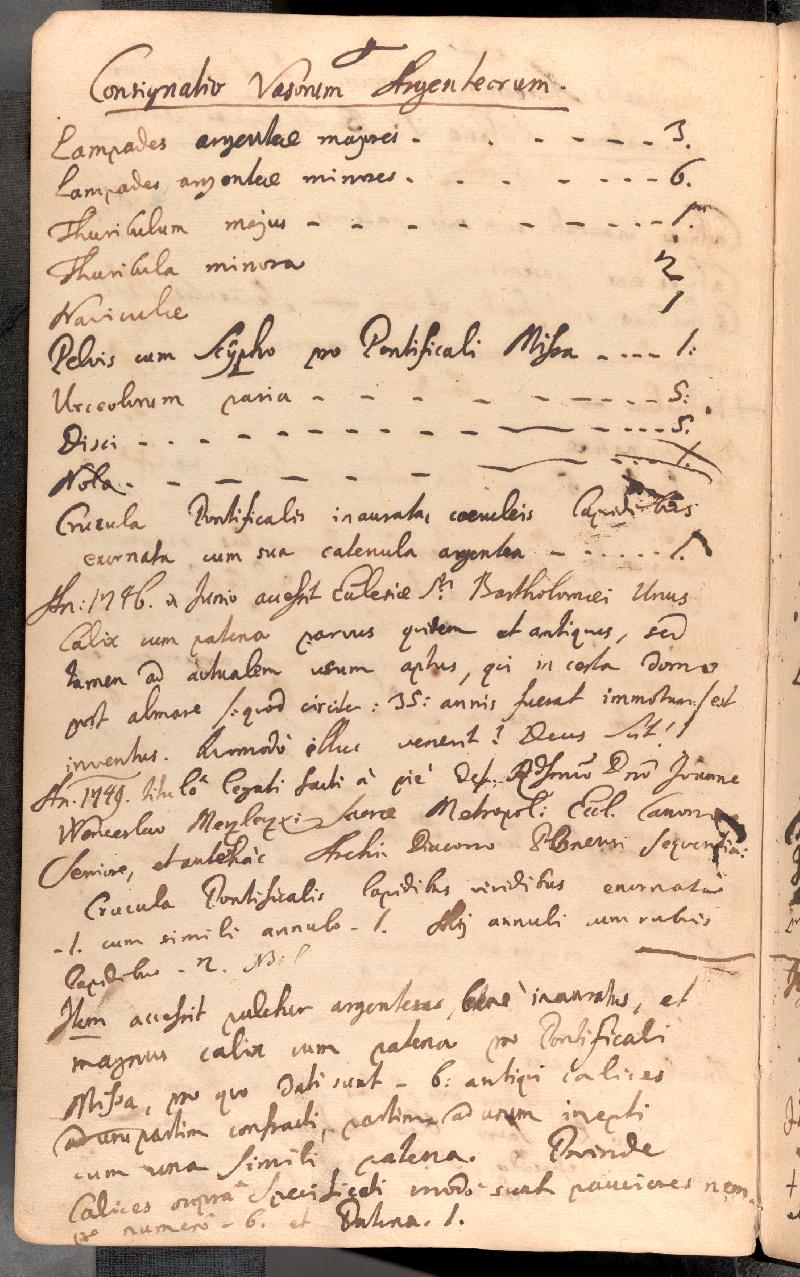 Consignatio Vasorum Argenteorum.
Lampades argenteæ majores - - - - - - 3.
Lampades argenteæ minores. - - - - - 6.
Thuribulum majus - - - - - - - - 1.
Thuribula minora 2
Naviculæ 1
Pelvis cum Scÿpho pro Pontificali Missa - - - - 1:
Urceolorum paria - - - - - - - 5:
Disci - - - - - - - - - - - 5.
Nola - - - - - - - - 1.
Crucula Pontificalis inaurata, coeruleis lapidibus
exornata cum sua catenula argentea - - - - - 1.
An: 1746. a Junio accessit Ecclesiæ Sti Bartholomæi Unus
Calix cum patena parvus quidem et antiquus, sed
tamen ad actualem usum aptus, qui in cesta domo
post almare /: quod circiter: 35: annis fuerat immotum/ est
inventus. Quomodò illuc venerit? Deus scit!
An. 1749. titulô legati facti à piè def. Rdsimo Dno Joanne
Wenceslao Sacræ Metropol: Eccl. Canon
Seniore, et antehàc Archi Diacono Plsnensi sequentia:
Crucula Pontificalis lapidibus viridibus exornata
- 1. cum simili annulo - 1. Alij annuli cum rubris
lapidibus - 2. NB
Item accessit pulcher argenteus, benè inauratus, et
magnus calix cum patena pro Pontificali
Missa, pro quo dati sunt - 6: antiqui calices
partim confracti, partim ad usum inepti
cum una simili patena. Proinde
Calices suprà Specificati modò sunt pauciores nem
pe numerô - 6. et Patena. 1.